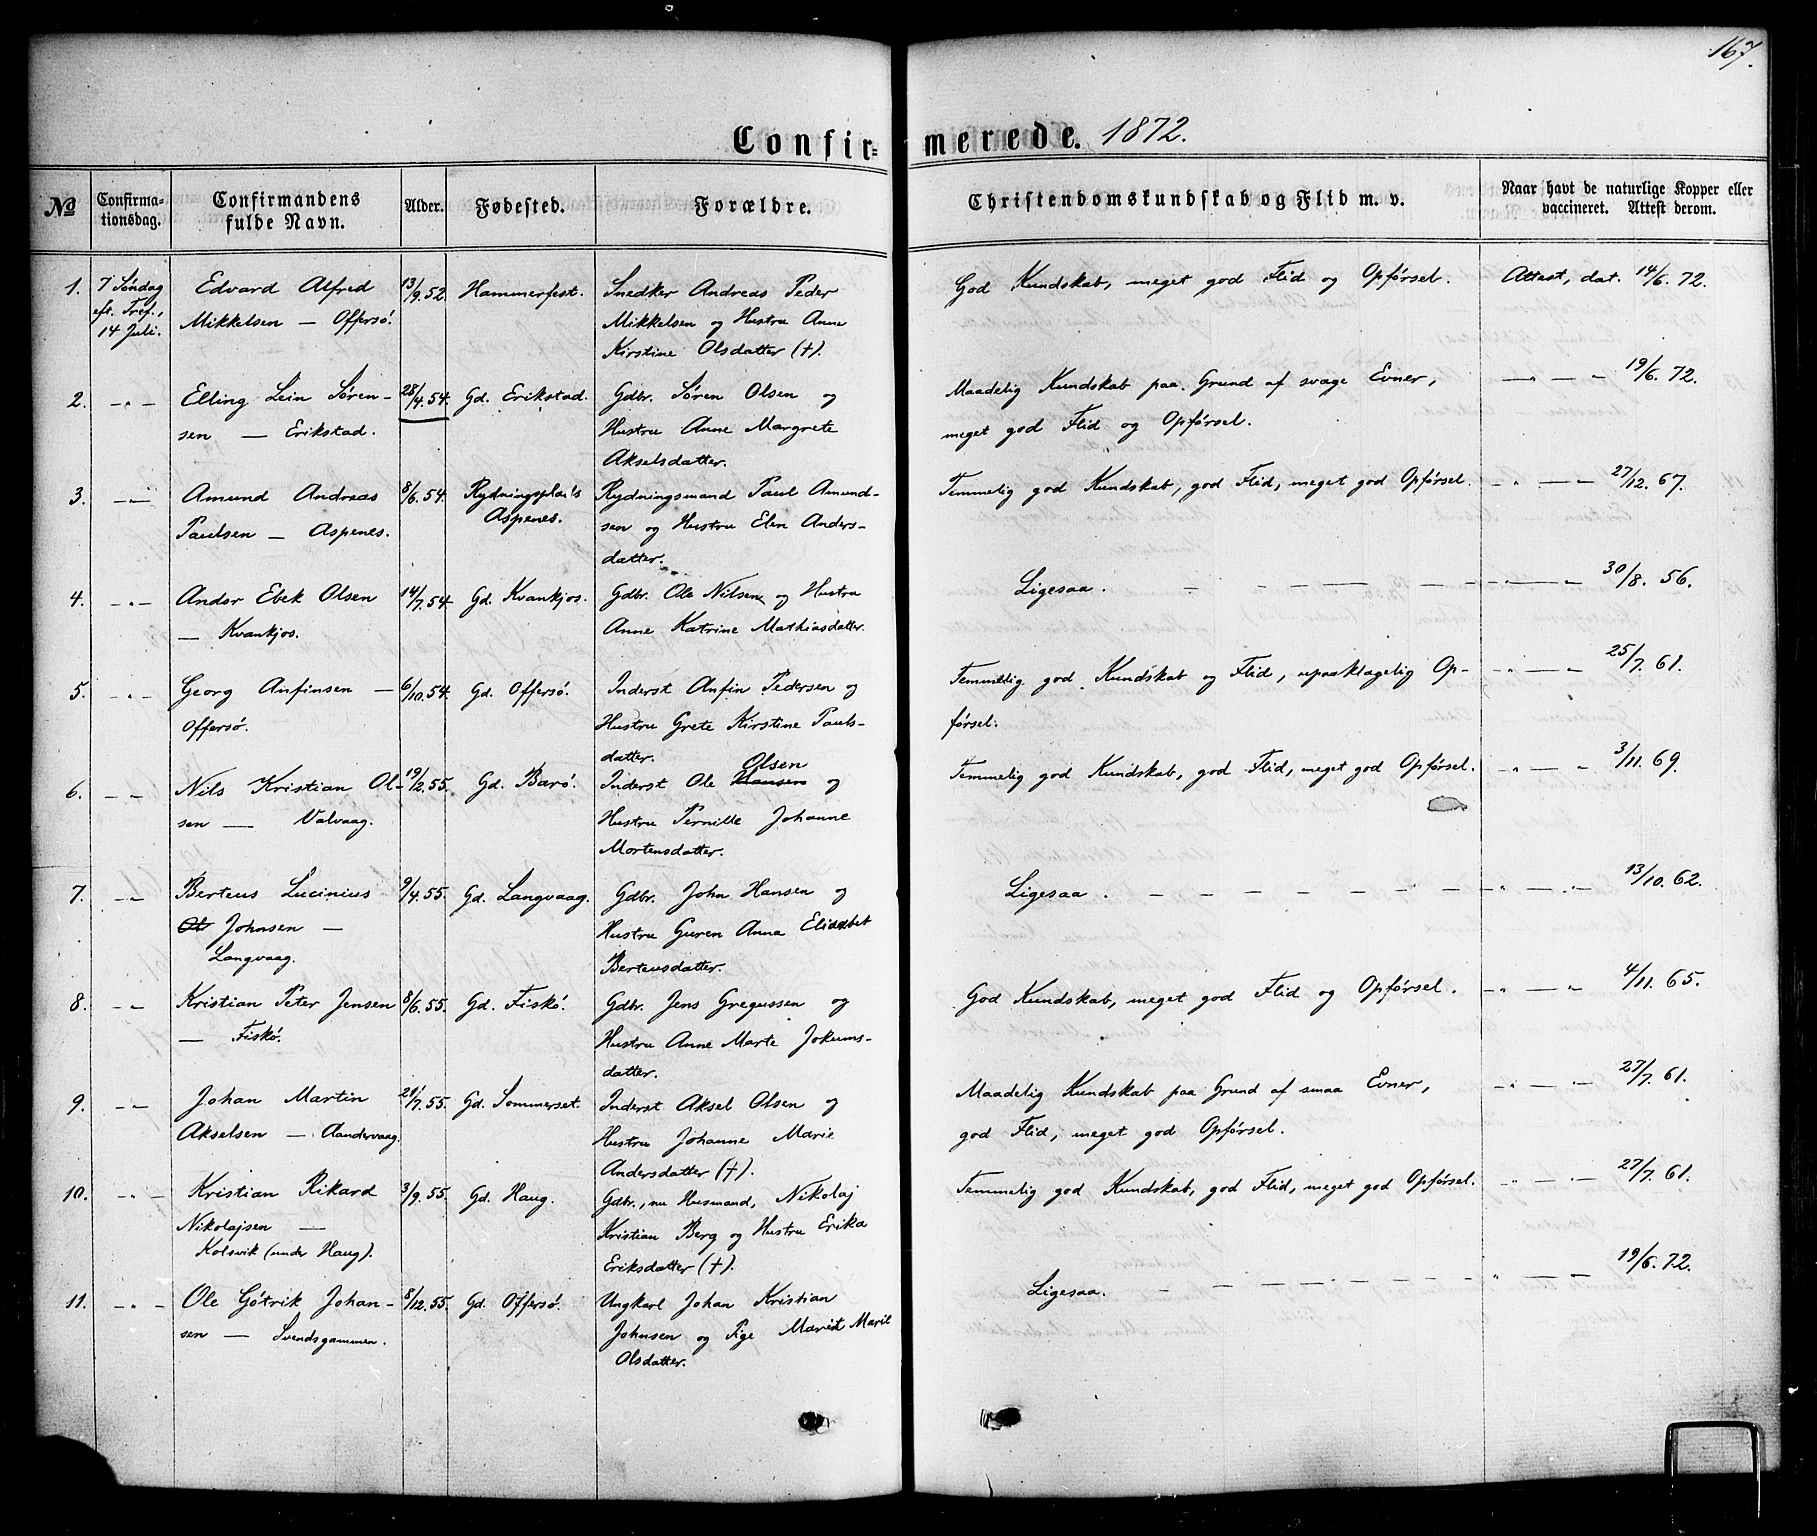 167.
Confir= merede. 1872.
No
Confirma-
tionsdag.
Confirmandens
fulde Navn.
Alder.
Fødested.
Forældre.
Christendomskundskab og Flid m. v.
Naar havt de naturlige Kopper eller
vaccineret. Attest derom.
1. 7 Söndag Edvard Alfred 13/9.52. Hammerfest. Snedker Andreas Peder God Kundskab, meget god Flid og Opförsel. Attest, dat. 14/6.72.
eft. Tref., Mikkelsen — Offersö. Mikkelsen og Hustru Anne
14 Juli. Kirstine Olsdatter (†).
2. -„- Elling Lein Sören- 28/4.54. Gd. Erikstad. Gdbr. Sören Olsen og Maadelig Kundskab paa Grund af svage Evner, — „ — „ 19/6.72.
sen — Erikstad. Hustru Anne Margrete meget god Flid og Opförsel.
Akselsdatter.
3. -„- Amund Andreas 8/6.54. Rydningsplads Rydningsmand Paul Amund- Temmelig god Kundskab, god Flid, meget god Opförsel. - „ — „ 27/12.67.
Paulsen — Aspenes. Aspenes. sen og Hustru Elen Anders-
datter.
4. -„- Andor Ebek Olsen 14/7.54. Gd. Kvankjos. Gdbr. Ole Nilsen og Hustru Ligesaa. — — — — — - „ — „ 30/8.56.
— Kvankjos. Anne Katrine Mathiasdatter.
5. -„- Georg Anfinsen — 6/10.54. Gd. Offersö. Inderst Anfin Pedersen og Temmelig god Kundskab og Flid, upaaklagelig Op- - „ — „ 25/7.61.
Offersö. Hustru Grete Kirstine Pauls- försel.
datter.
Olsen
6. -„- Nils Kristian Ol- 19/2.55. Gd. Barö. Inderst Ole Hansen og Temmelig god Kundskab, god Flid, meget god Opförsel. - „ — „ 3/11.69.
sen — Valvaag. Hustru Pernille Johanne
Mortensdatter.
7. -„- Berteus Lucinius 9/4.55. Gd. Langvaag. Gdbr. John Hansen og Ligesaa. — — — — — - „ — „ 13/10.62.
Ol Johnsen — Hustru Guren Anna Elisabet
Langvaag. Berteusdatter.
8. -„- Kristian Peter Jensen 8/6.55. Gd. Fiskö. Gdbr. Jens Gregussen og God Kundskab, meget god Flid og Opförsel. - „ — „ 4/11.65.
— Fiskö. Hustru Anne Marte Jokums-
datter.
9. -„- Johan Martin 21/7.55. Gd. Sommerset. Inderst Aksel Olsen og Maadelig Kundskab paa Grund af smaa Evner, - „ — „ 27/7.61.
Akselsen — Aandervaag. Hustru Johanne Marie god Flid, meget god Opförsel.
Andersdatter (†).
10. -„- Kristian Rikard 3/9.55. Gd. Haug. Gdbr., nu Husmand, Nikolaj Temmelig god Kundskab, god Flid, meget god Opförsel. - „ — „ 27/7.61.
Nikolajsen — Kristian Berg og Hustru Erika
Kolsvik (under Haug). Eriksdatter (†).
11. -„- Ole Götrik Johan- 8/12.55. Gd. Offersö. Ungkarl Johan Kristian Ligesaa. — — — — — „ — „ 19/6.72.
sen — Svendsgammen. Johnsen og Pige Marit Marie
Olsdatter.